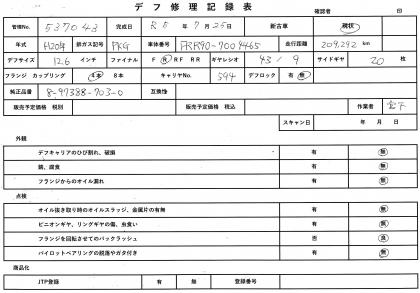 デフ修理記録表
確認者 印
管理No. 537043 完成日 R5年7月25日 新古車 現状
年式 H20年 排ガス記号 PKG 車体番号 FRR90-7009465 走行距離 209,292 km
デフサイズ 12.6 インチ ファイナル F R RF RR ギヤレシオ 43/9 サイドギヤ 20 枚
フランジ カップリング 4本 8本 キャリヤNo. 594 デフロック 有 無
純正品番 8-97388-703-0 互換性
販売予定価格 税別 販売予定価格 税込 作業者 宮下
スキャン日 年 月 日
外観
デフキャリアのひび割れ、破損 有 無
錆、腐食 有 無
フランジからのオイル漏れ 有 無
点検
オイル抜き取り時のオイルスラッジ、金属片の有無 有 無
ピニオンギヤ、リングギヤの傷、虫食い 有 無
フランジを回転させてのバックラッシュ 否 良
パイロットベアリングの脱落やガタ付き 有 無
商品化
JTP登録 有 無 登録番号